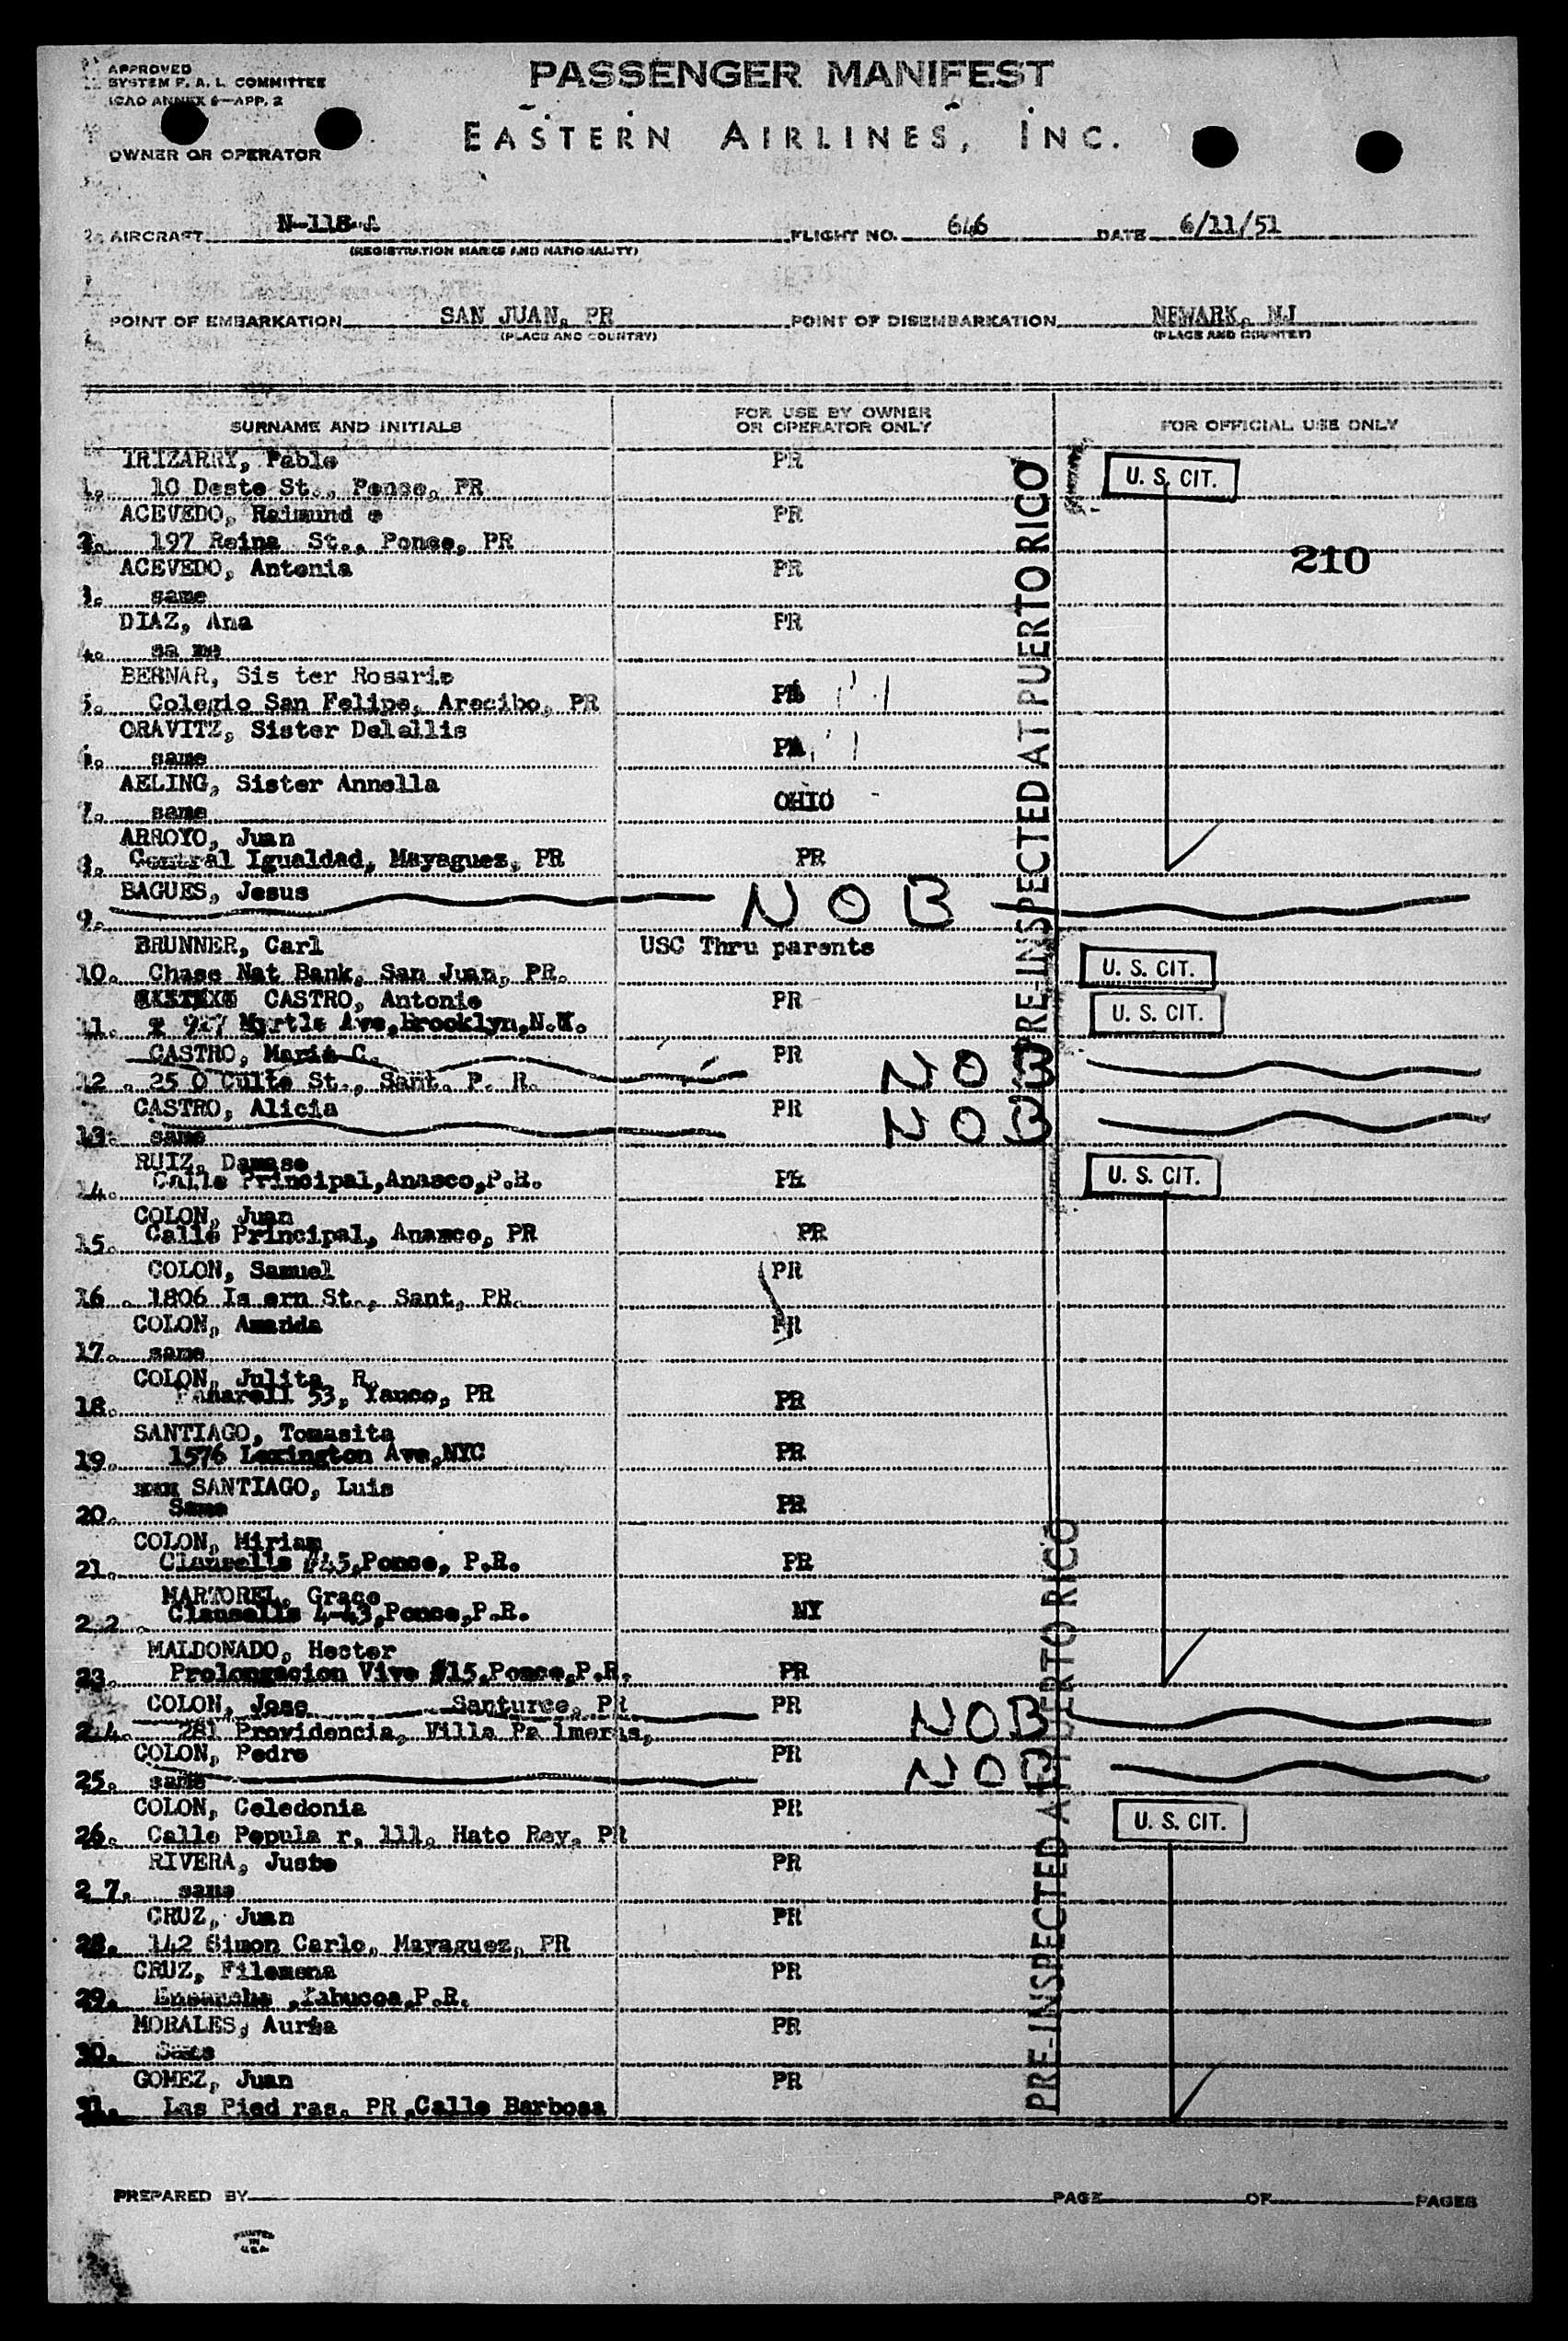 APPROVED
SYSTEM F. A. L. COMMITTEE
ICAO ANNEX 6—APP. 2
PASSENGER MANIFEST
EASTERN AIRLINES, INC.
OWNER OR OPERATOR
AIRCRAFT
(REGISTRATION MARKS AND NATIONALITY)
FLIGHT NO. 646
DATE 6/11/51
POINT OF EMBARKATION SAN JUAN, PR
(PLACE AND COUNTRY)
POINT OF DISEMBARKATION NEWARK, NJ
(PLACE AND COUNTRY)
SURNAME AND INITIALS
FOR USE BY OWNER
OR OPERATOR ONLY
FOR OFFICIAL USE ONLY
IRIZARRY, Pablo PR
1. 10 Deste St., Ponce, PR U. S. CIT.
ACEVEDO, Raimund o PR
2. 197 Reina St., Ponce, PR
210
ACEVEDO, Antonia PR
3. same
DIAZ, Ana PR
4. sa me
BERNAR, Sis ter Rosario
5. Colegio San Felipe, Arecibo, PR
ORAVITZ, Sister Delellis
6. same PA
AELING, Sister Annella
7. same OHIO
ARROYO, Juan
8. Central Igualdad, Mayaguez, PR PR
BAGUES, Jesus NOB
9.
BRUNNER, Carl USC Thru parents
10. Chase Nat Bank, San Juan, PR. U. S. CIT.
CASTRO, Antonio PR U. S. CIT.
11. 927 Myrtle Ave,Brooklyn,N.Y.
CASTRO, Maria C. PR NOB
12 . 25 O Culto St., Sant. P. R.
CASTRO, Alicia PR NOB
13. same
RUIZ, Damaso
14. Calle Principal,Anasco,P.R. PR U. S. CIT.
COLON, Juan
15. Calle Principal, Anasco, PR PR
COLON, Samuel PR
16 . 1806 Is ern St., Sant, PR.
COLON, Amanda PR
17. same
COLON, Julita R.
18. 53, Yauco, PR PR
SANTIAGO, Tomasita
19. 1576 Lexington Ave,NYC PR
SANTIAGO, Luis
20. Same PR
COLON, Miriam
21. Clausells #45,Ponce, P.R. PR
MARTOREL, Grace
2 2 . Clausells 4-43,Ponce,P.R. NY
MALDONADO, Hector
23. Prolongacion Vive #15,Ponce,P.R. PR
COLON, Jose Santurce, PR PR NOB
2 4. 281 Providencia, Villa Pa lmeras,
COLON, Pedro PR NOB
25. same
COLON, Celedonia PR U. S. CIT.
26. Calle Popula r, 111, Hato Rey, PR
RIVERA, Justo PR
2 7. same
CRUZ, Juan PR
28. 142 Simon Carlo, Mayaguez, PR
CRUZ, Filomena PR
29. Ensanche ,Yabucoa,P.R.
MORALES, Aurea PR
30. Same
GOMEZ, Juan PR
31. Las Pied ras, PR ,Calle Barbosa
PRE-INSPECTED AT PUERTO RICO
PRE-INSPECTED AT PUERTO RICO
PREPARED BY PAGE OF PAGES
PRINTED
IN
U.S.A.